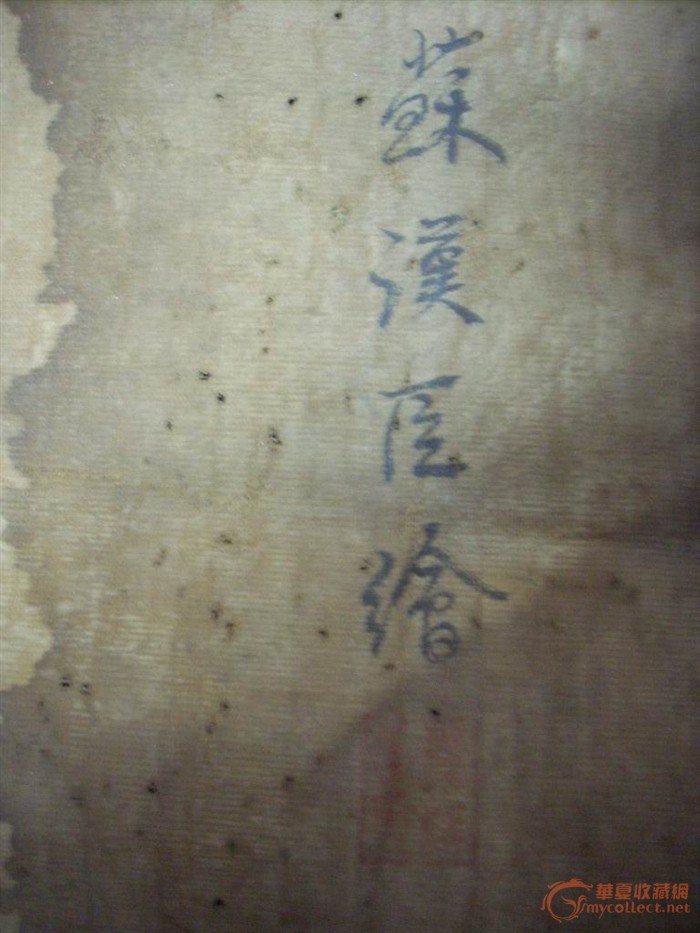 蘇漢臣繪
華夏收藏網
mycollect.net